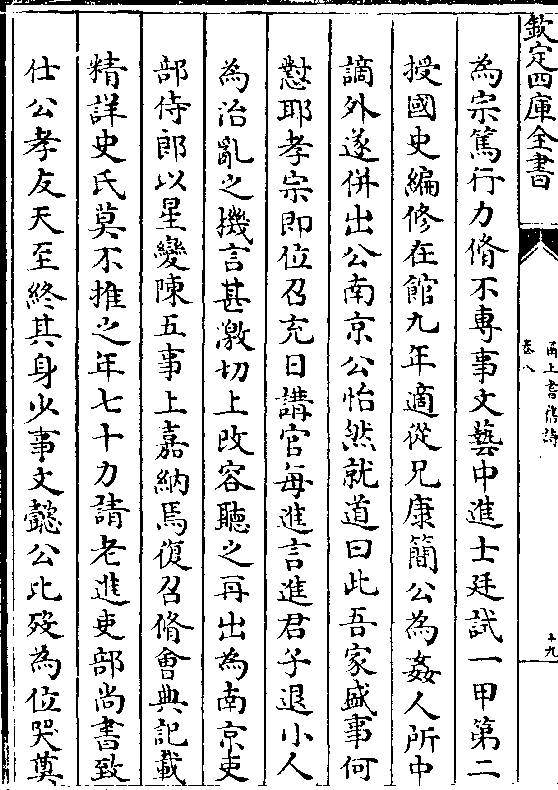 欽定四庫全書
甬上耆舊詩
卷八
十九
為宗篤行力脩不專事文藝中進士廷試一甲第二
授國史編修在館九年適從兄康簡公為姦人所中
謫外遂併出公南京公怡然就道曰此吾家盛事何
懟耶孝宗即位召充日講官每進言進君子退小人
為治亂之機言甚激切上改容聽之再出為南京吏
部侍郎以星變陳五事上嘉納焉復召脩會典記載
精詳史氏莫不推之年七十力請老進吏部尚書致
仕公孝友天至終其身少事文懿公比歿為位哭奠